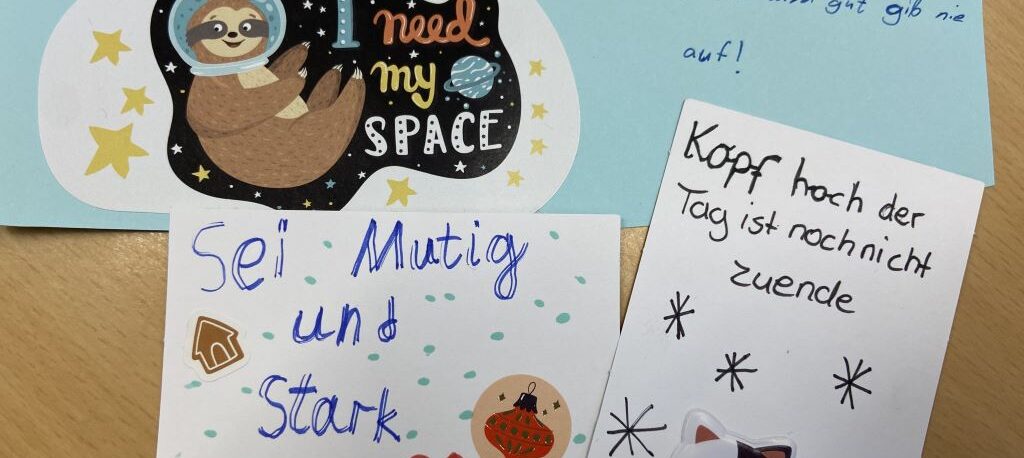 I
need
my
SPACE
gut gib nie
auf!
Sei Mutig
und
Stark
Kopf hoch der
Tag ist noch nicht
zuende